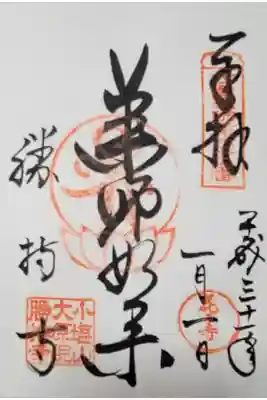 奉拝
平成三十一年
一月一日
花寺
薬師如来
勝持寺
小塩山
大原院
勝持寺